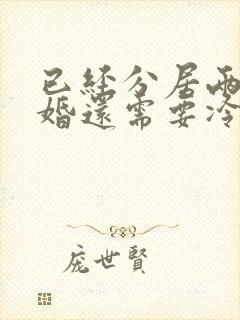 已经分居两
婚還需要冷
庞世賢